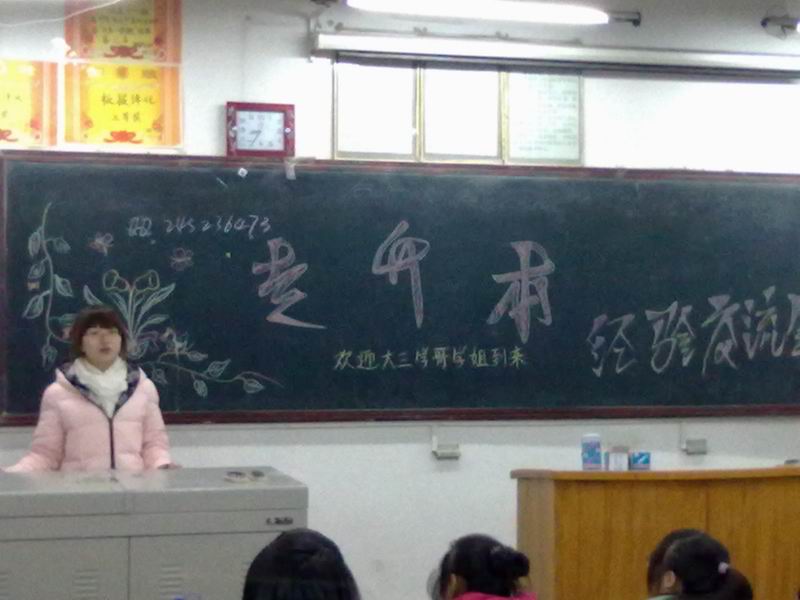 QQ. 245236473
专升本
经验交流会
欢迎大三学哥学姐到来
三等奖